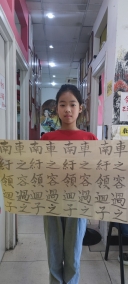 車之客過之
南紆領迴子
車之客過之
南紆領迴子
車之客過之
南紆領迴子
車之客過之
南紆領迴子